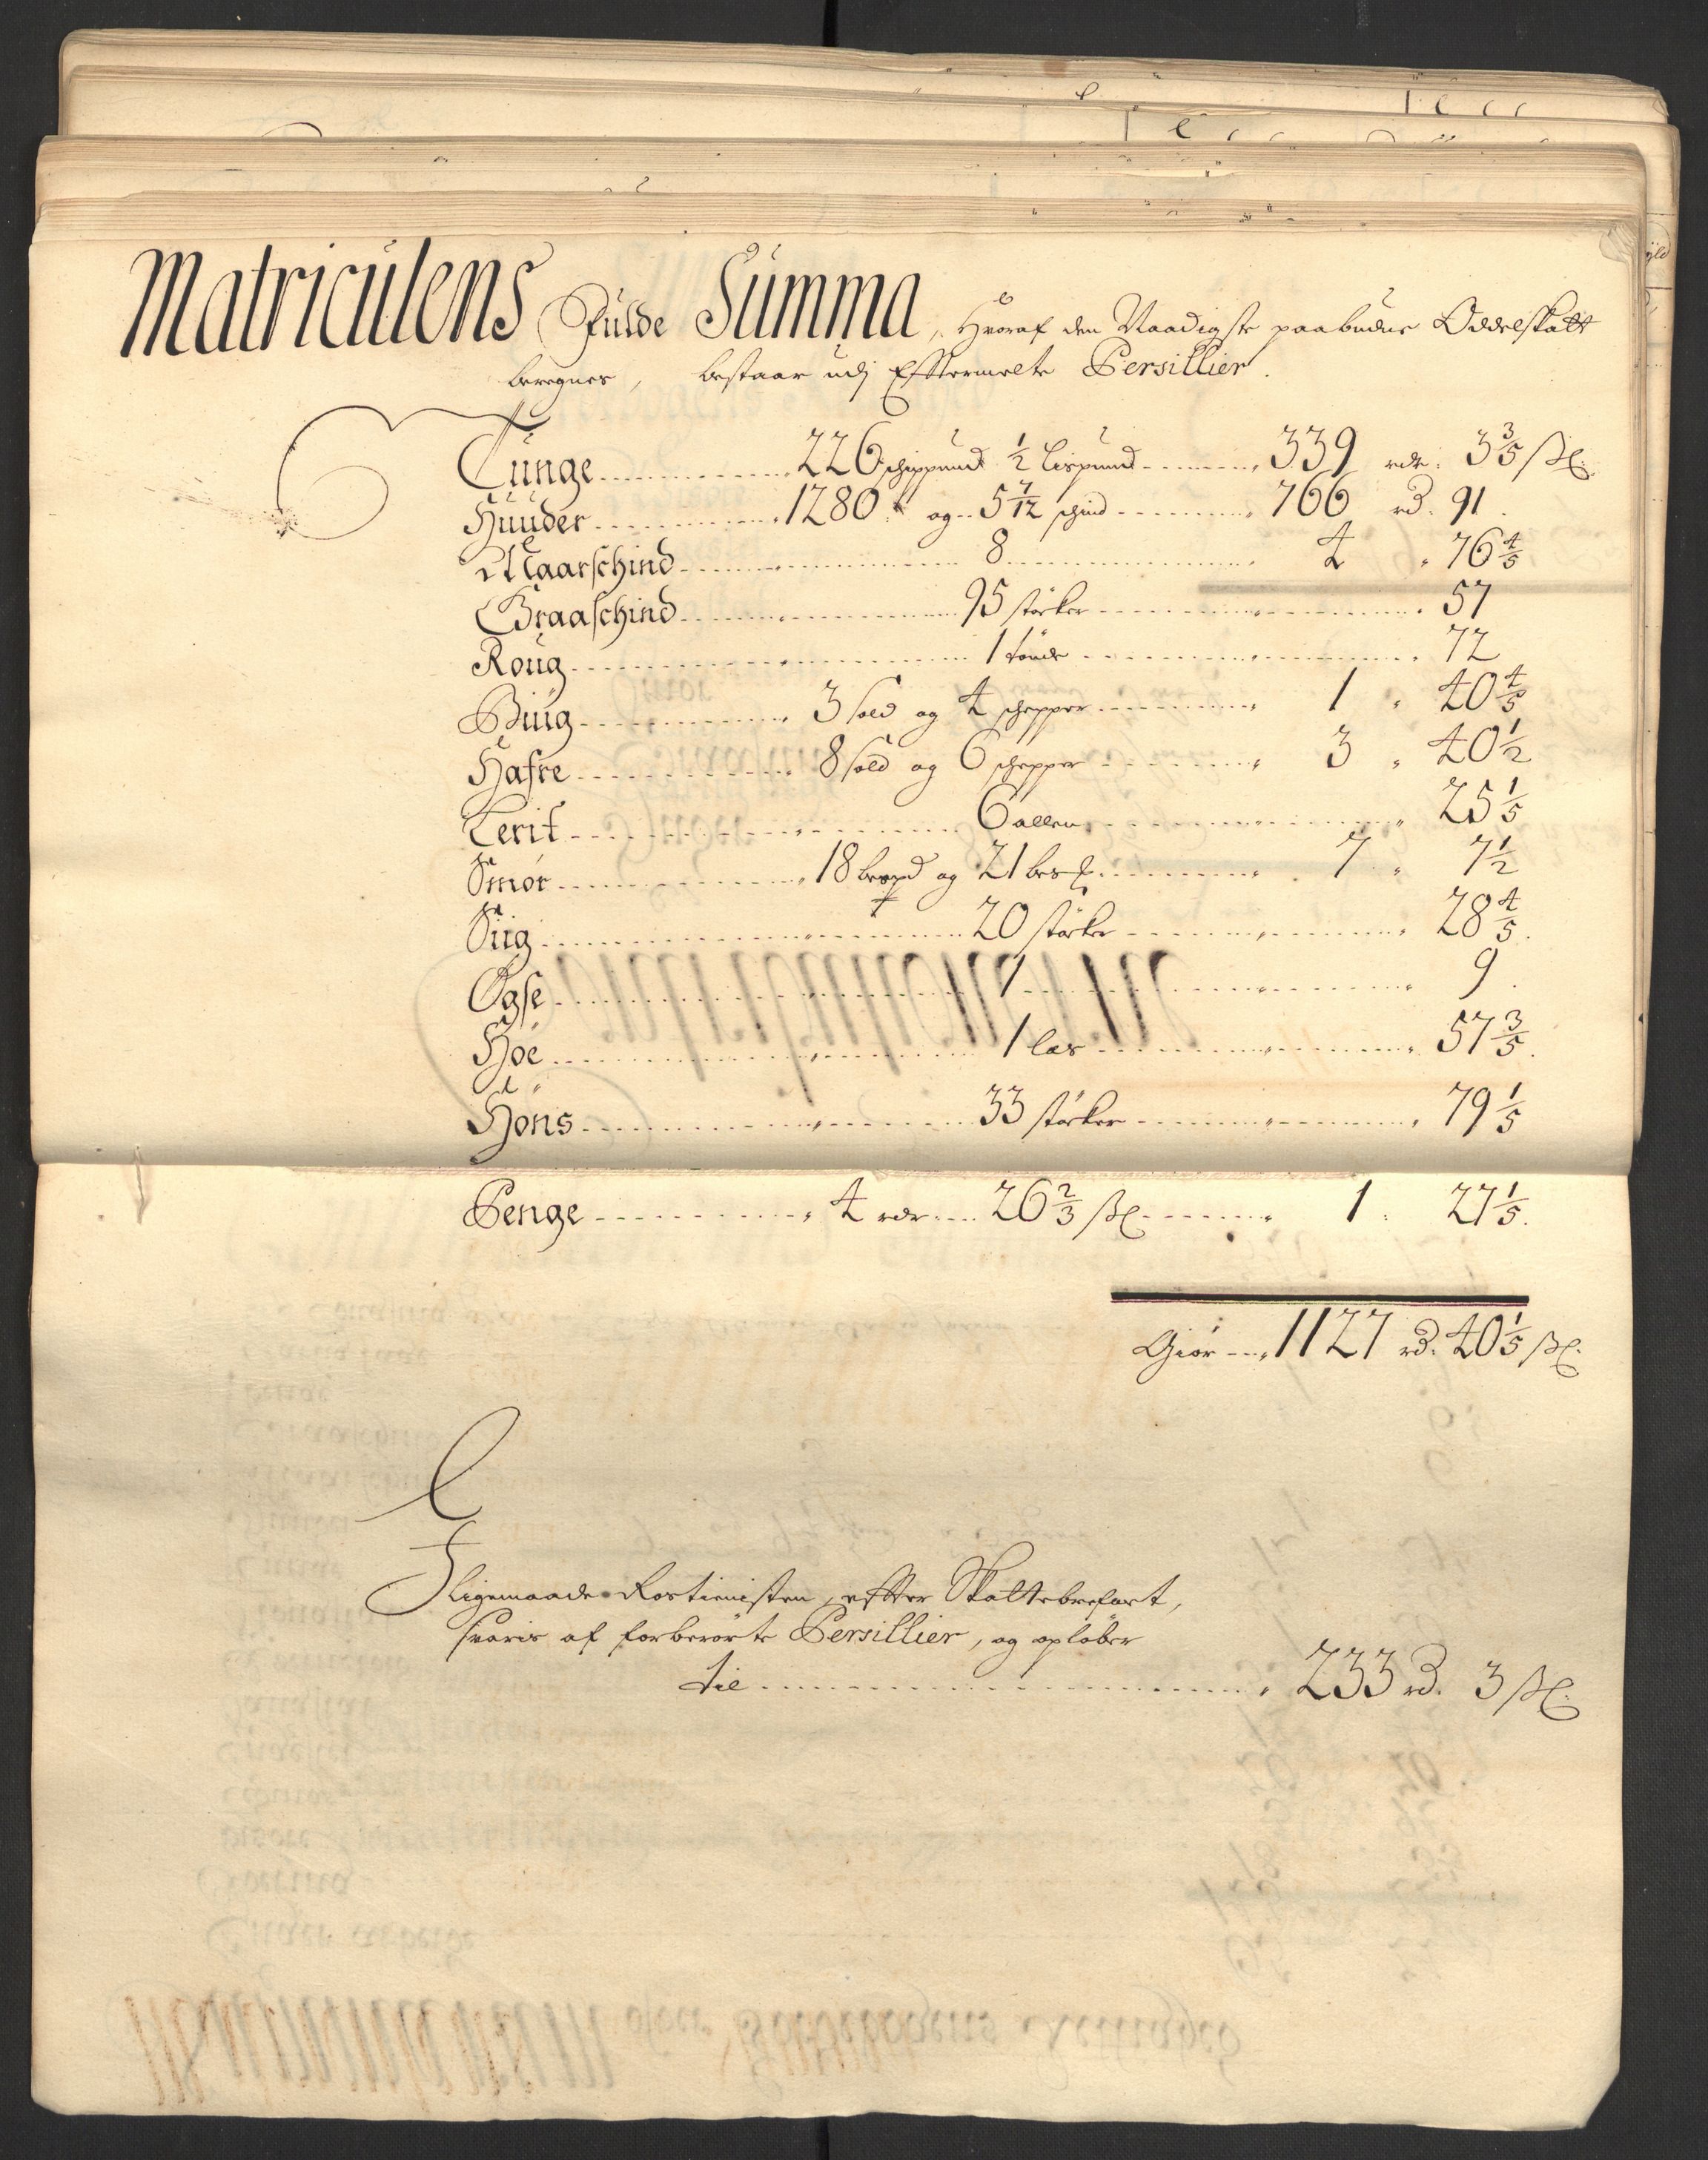 Matriculens Fulde Summa, Hvoraf den Naadigste paabudne Oddelskatt
beregnes, bestaar udj Effttermelte Persillier.
Tunge 226 schippund 1/2 Lispund 339 rdr. 3 3/5 ß
Huuder 1280 og 5 7/12 schind 766 rd. 91
Maarschind 8 4 76 4/5
Graaschind 95 støcker 57
Roug 1 tønde 72
Biug 3 sold og 4 schepper 1 40 4/5
Hafre 8 sold og 6 schepper 3 40 1/2
Lerit 6 allen 25 1/5
Smør 18 og 21 7 7 1/2
20 støcker 28 4/5
1 9
Høe 1 læs 57 3/5
Høns 33 støcker 79 1/5
Penge 4 rdr 26 2/3 ß 1 27 1/5
Giør 1127 rd. 40 1/5 ß
I ligemaade Rostienisten, effter Skattebrefvet,
svaris af forberørte Persillier, og opløber
til 233 rd. 3 ß